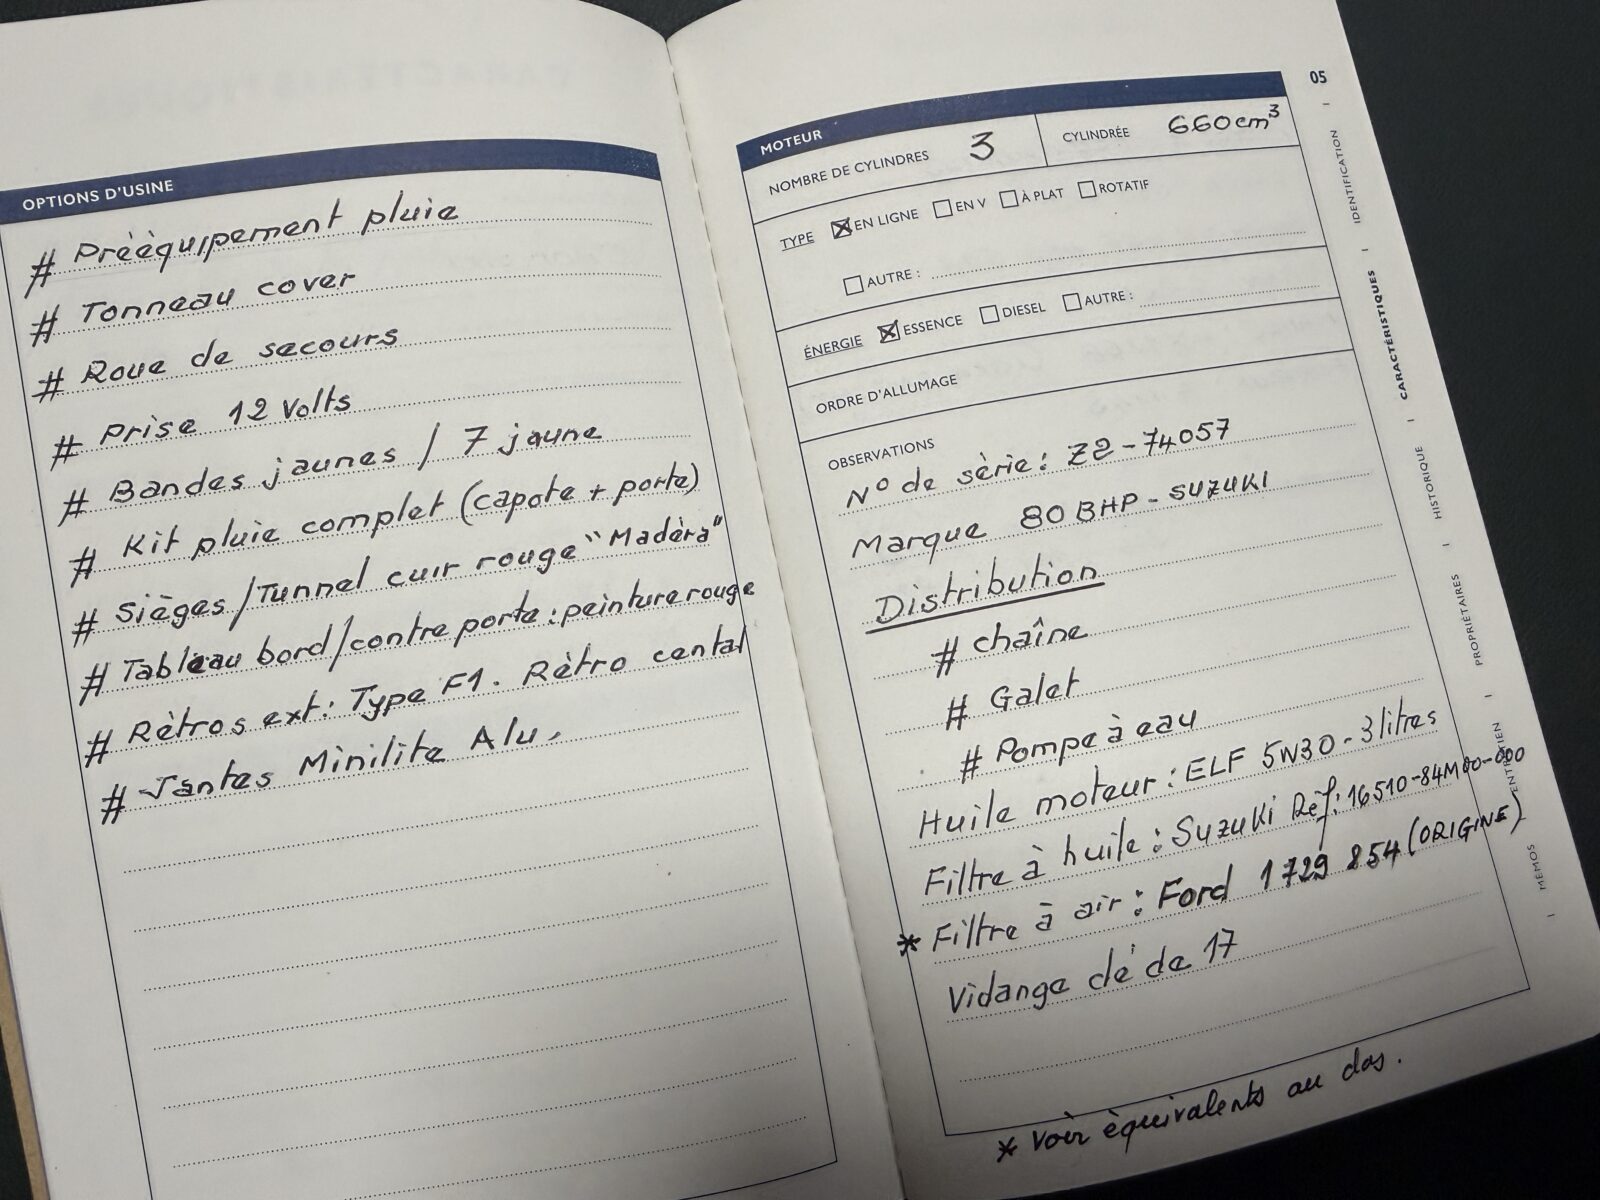 OPTIONS D'USINE
# Prèèquipement pluie
# Tonneau cover
# Roue de secours
# Prise 12 Volts
# Bandes jaunes / 7 jaune
# Kit pluie complet (capote + porte)
# Sièges/Tunnel cuir rouge "Madèra"
# Tableau bord/contre porte : peinture rouge
# Rètros ext : Type F1. Rètro cental
# Jantes Minilite Alu.
05
MOTEUR
NOMBRE DE CYLINDRES 3 CYLINDRÉE 660cm³
TYPE ☒ EN LIGNE ☐ EN V ☐ À PLAT ☐ ROTATIF
☐ AUTRE :
ÉNERGIE ☒ ESSENCE ☐ DIESEL ☐ AUTRE :
ORDRE D'ALLUMAGE
OBSERVATIONS
N° de sèrie : Z2-74057
Marque 80 BHP - SUZUKI
Distribution
# chaîne
# Galet
# Pompe à eau
Huile moteur : ELF 5W30 - 3 litres
Filtre à huile : Suzuki Rèf : 16510-84M00-000
* Filtre à air : Ford 1729 854 (ORIGINE)
Vidange clé de 17
* Voir èquivalents au dos.
IDENTIFICATION
CARACTÉRISTIQUES
HISTORIQUE
PROPRIÉTAIRES
ENTRETIEN
MEMOS